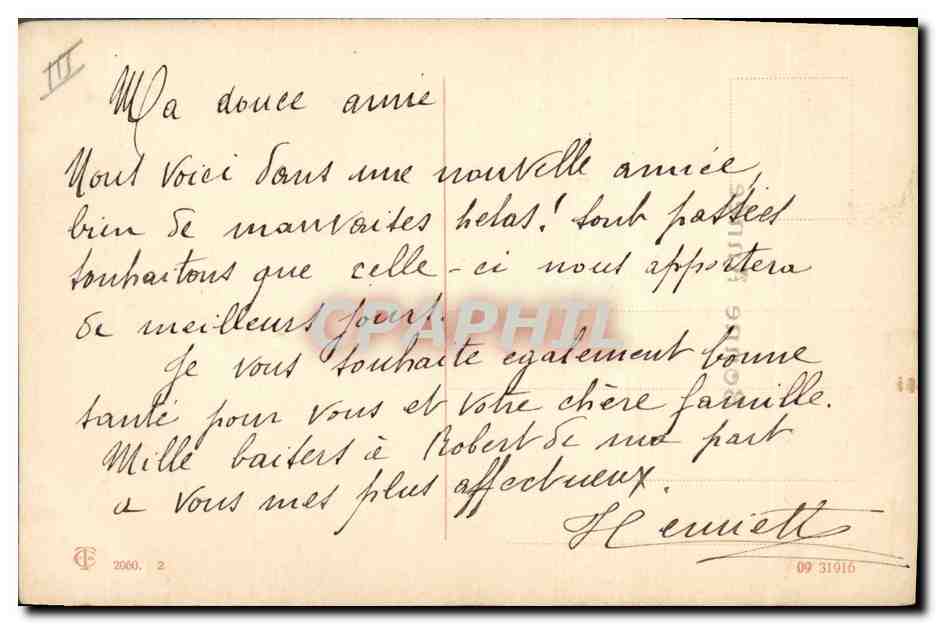 III
Ma douce amie
Nous voici dans une nouvelle année,
bien de mauvaises helas! sont passées
souhaitons que celle-ci nous apportera
de meilleurs jours.
CPAPHIL
Je vous souhaite egalement bonne
santé pour vous et votre chère famille.
Mille baisers à Robert de ma part
a vous mes plus affectueux.
Henriett
2060. 2
09 31916